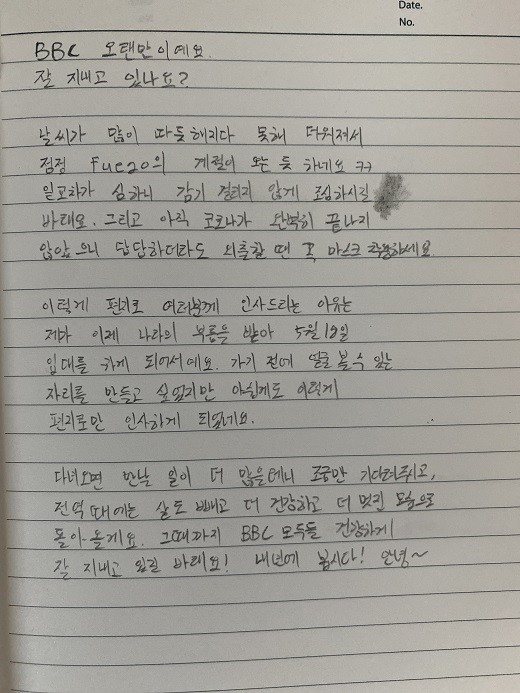 Date.
No.
BBC 오랜만이예요.
잘 지내고 있나요?
날씨가 많이 따듯해지다 못해 더워져서
점점 Fuego의 계절이 오는 듯 하네요 ㅋㅋ
일교차가 심하니 감기 걸리지 않게 조심하시길
바래요. 그리고 아직 코로나가 완벽히 끝나지
않았으니 답답하더라도 외출할 땐 꼭 마스크 착용하세요
이렇게 편지로 여러분께 인사드리는 이유는
제가 이제 나라의 부름을 받아 5월 12일
입대를 하게 되어서예요. 가기 전에 얼굴 볼 수 있는
자리를 만들고 싶었지만 아쉽게도 이렇게
편지로만 인사하게 되었네요.
다녀오면 만날 일이 더 많을테니 조금만 기다려주고,
전역 때에는 살도 빼고 더 건강하고 더 멋진 모습으로
돌아올게요. 그때까지 BBC 모두들 건강하게
잘 지내고 있길 바래요! 내년에 봅시다! 안녕~